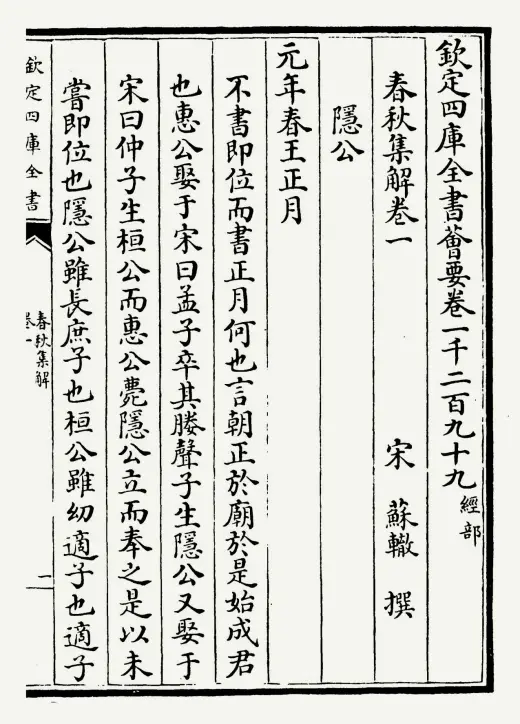 欽定四庫全書薈要卷一千二百九十九 經部
春秋集解卷一 宋 蘇轍 撰
隱公
元年春王正月
不書即位而書正月何也言朝正於廟於是始成君
也惠公娶于宋曰孟子卒其媵聲子生隱公又娶于
宋曰仲子生桓公而惠公薨隱公立而奉之是以未
嘗即位也隱公雖長庶子也桓公雖幼適子也適子
欽定四庫全書
春秋集解
卷一
一